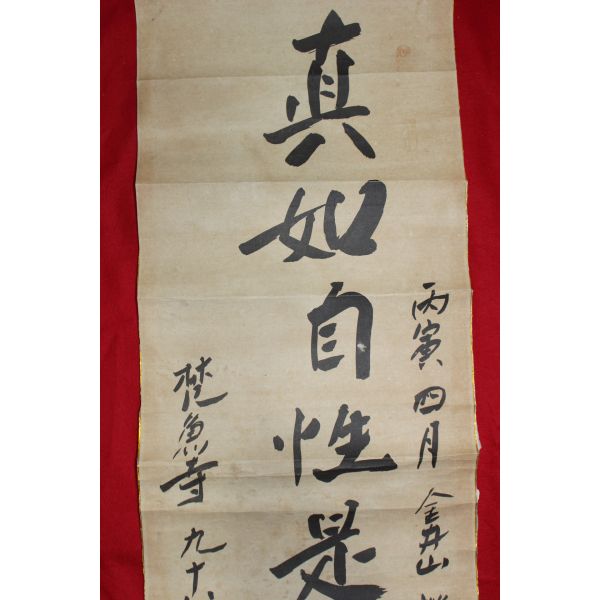 丙寅 四月 金井山
真如自性是
梵魚寺 九十